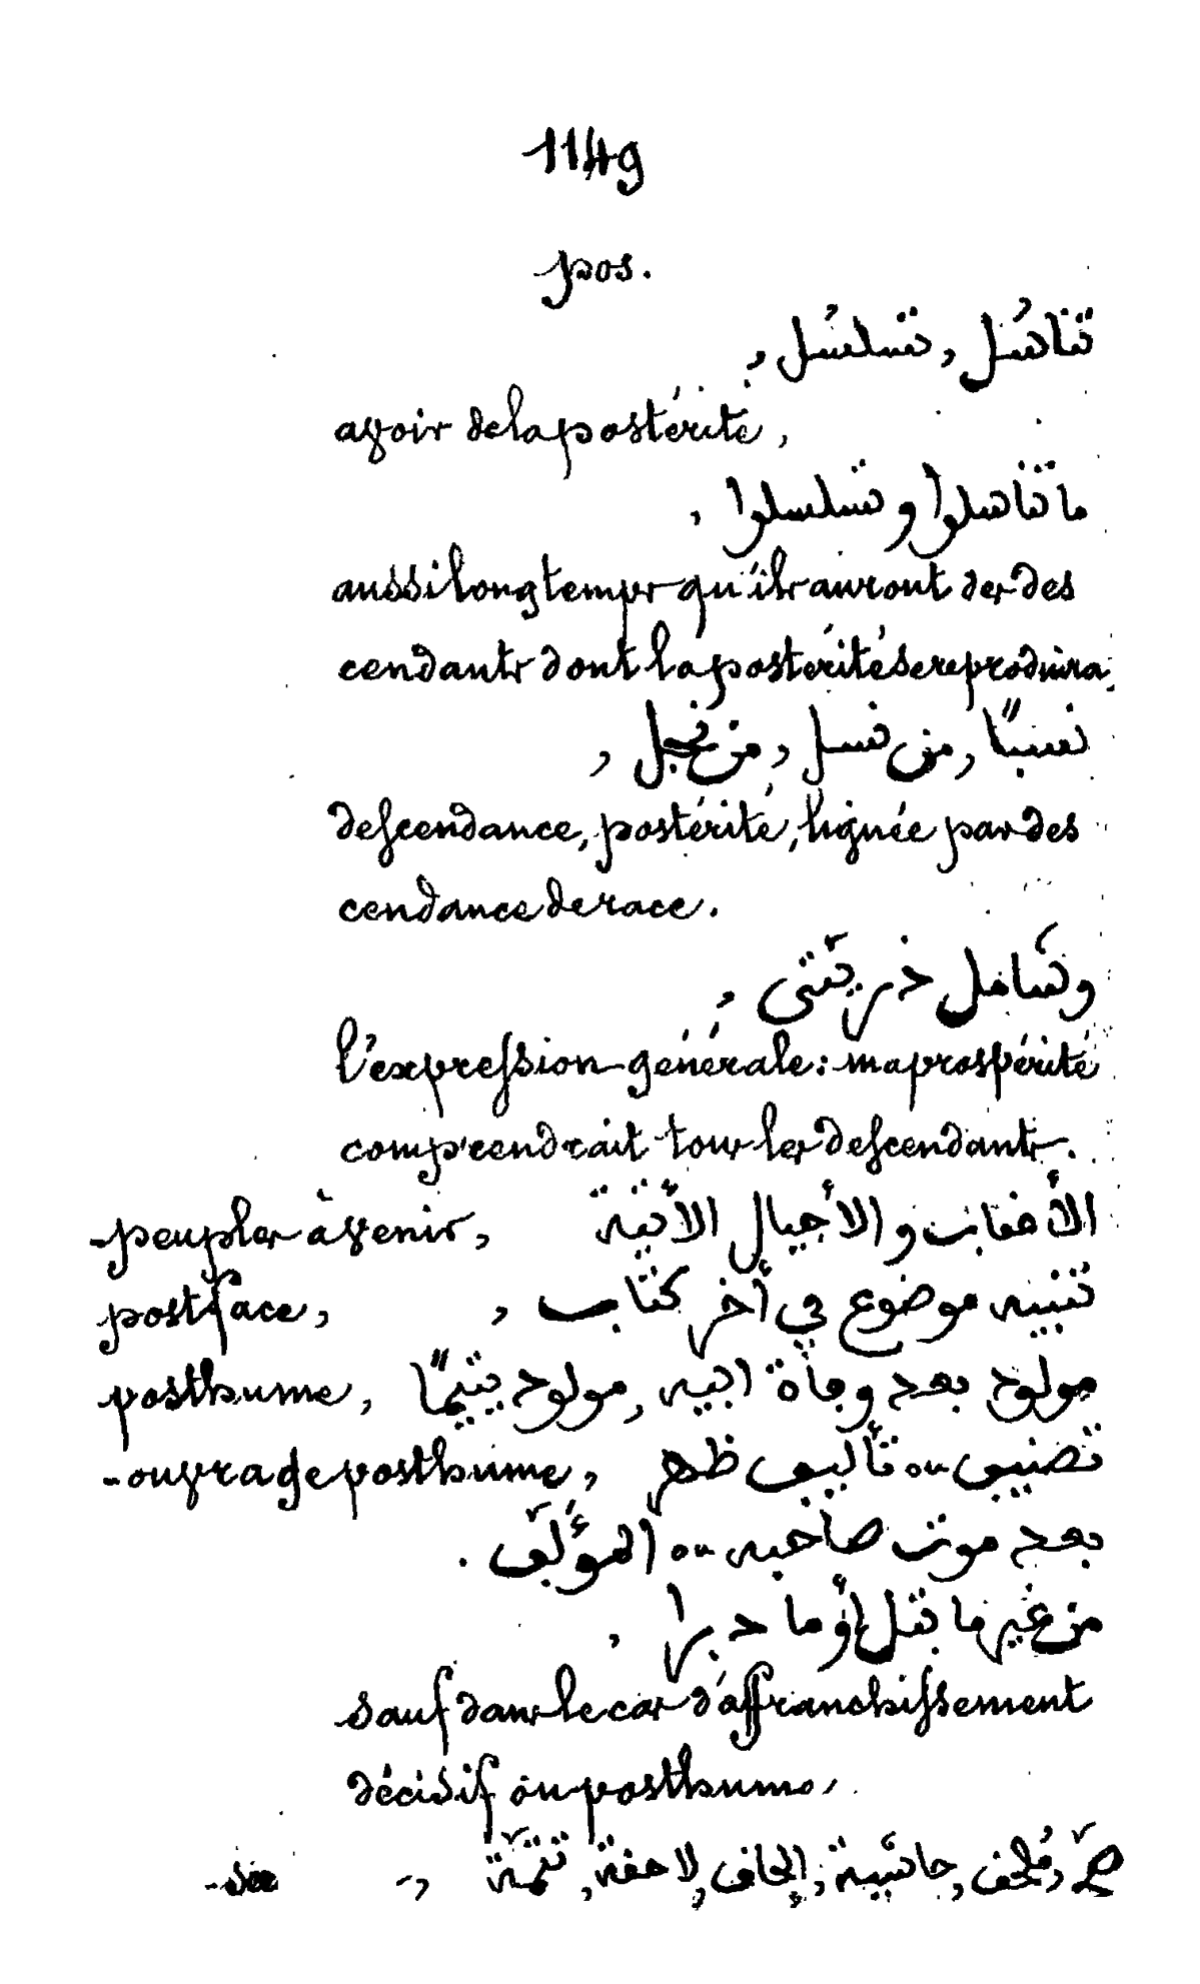 1149
pos.
تناسُل, تسلسُل,
avoir de la postérité,
ما تناسلوا وتسلسلوا,
aussi longtemps qu'ils auront des des
cendants dont la postérité se reproduira,
نسبًا, من نسل, من نجل,
descendance, postérité, lignée par des
cendance de race.
وتناسل ذريّتى,
l'expression générale: ma prospérité
comprendrait tous les descendants.
- peuples à venir, الأعقاب والأجيال الأتية
postface, تنبيه موضوع في أخر كتاب,
posthume, مولود بعد وفاة ابيه, مولود يتيمًا
- ouvrage posthume, تصنيف ou تأليف ظهر
بعد موت صاحبه ou المؤلّف.
من غير ما بتل أو ما دبرا,
sauf dans le cas d'affranchissement
décisif ou posthume,
مُلحق, حاشية, إلحاق, لاحقة, تتمّة,